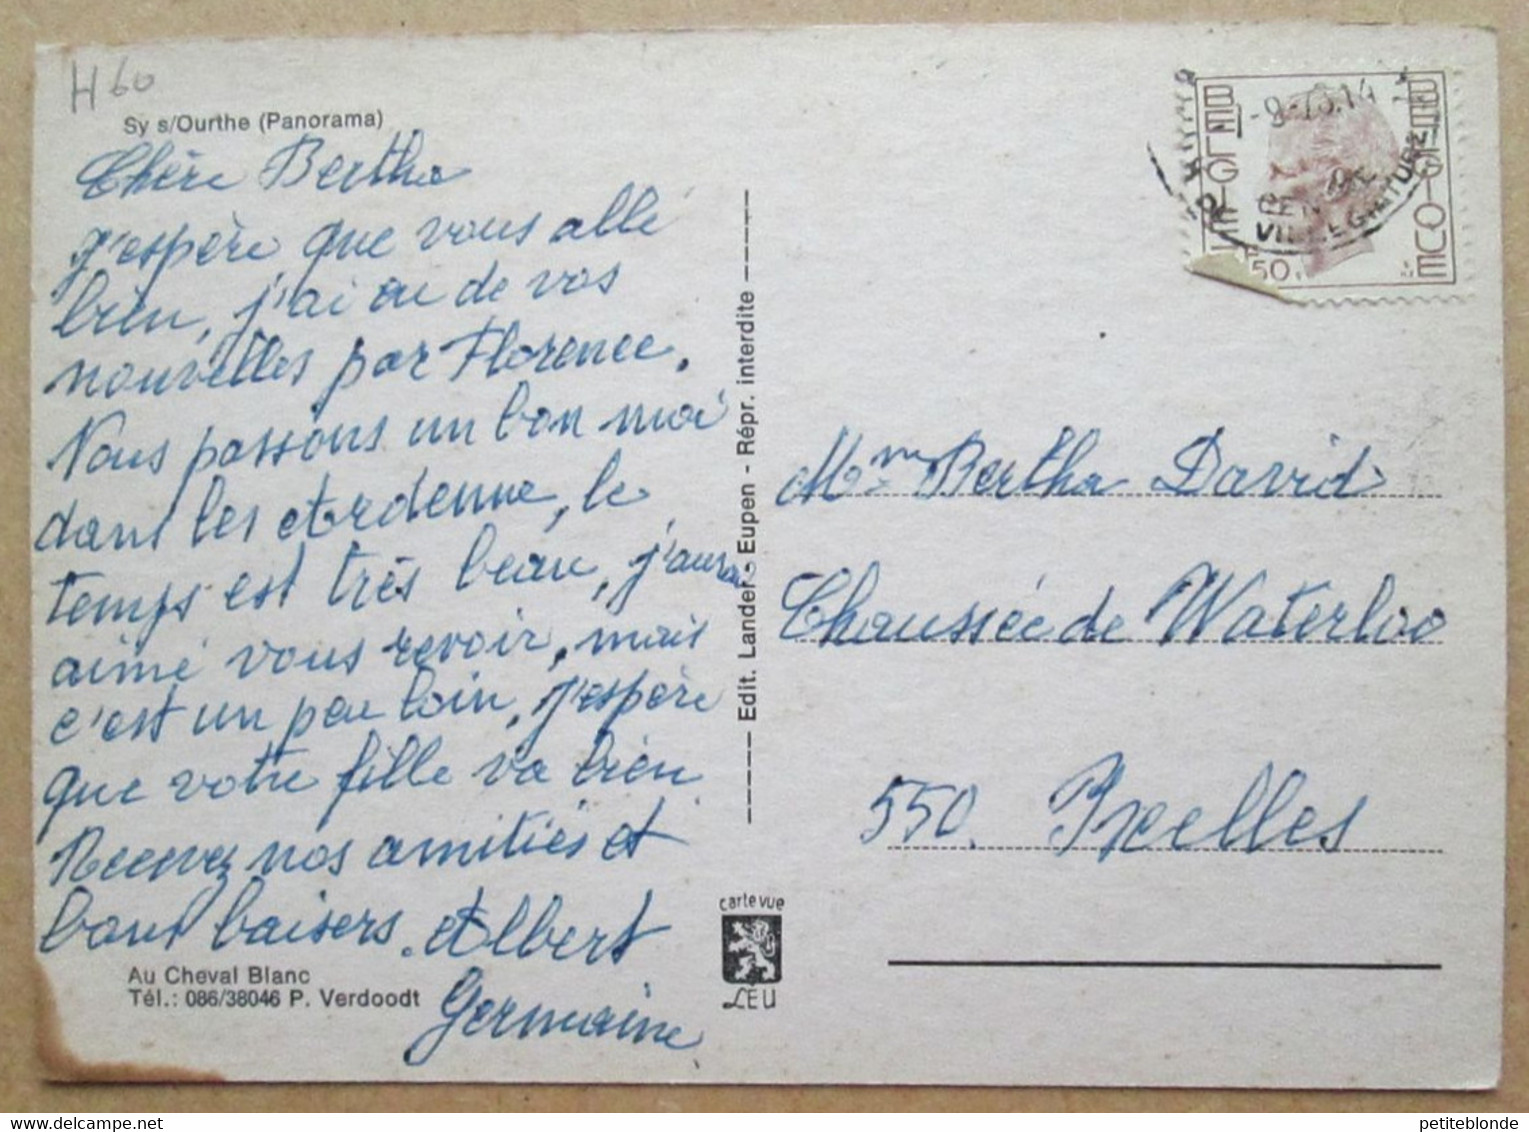 H 60
Sy s/Ourthe (Panorama)
Chère Bertha
J'espère que vous allé
bien, j'ai eu de vos
nouvelles par Florence.
Nous passons un bon moi
dans les Ardenne, le
temps est très beau, j'aurai
aimé vous revoir, mais
c'est un peu loin, j'espère
que votre fille va bien
Recevez nos amitiés et
bons baisers. Albert
Germaine
Au Cheval Blanc
Tél.: 086/38046 P. Verdoodt
Edit. Lander - Eupen - Répr. interdite
carte vue
LEU
BELGIE
BELGIQUE
-9-75.14
VILLEGIATURE
50
Mme Bertha David
Chaussée de Waterloo
550. Ixelles
petiteblonde